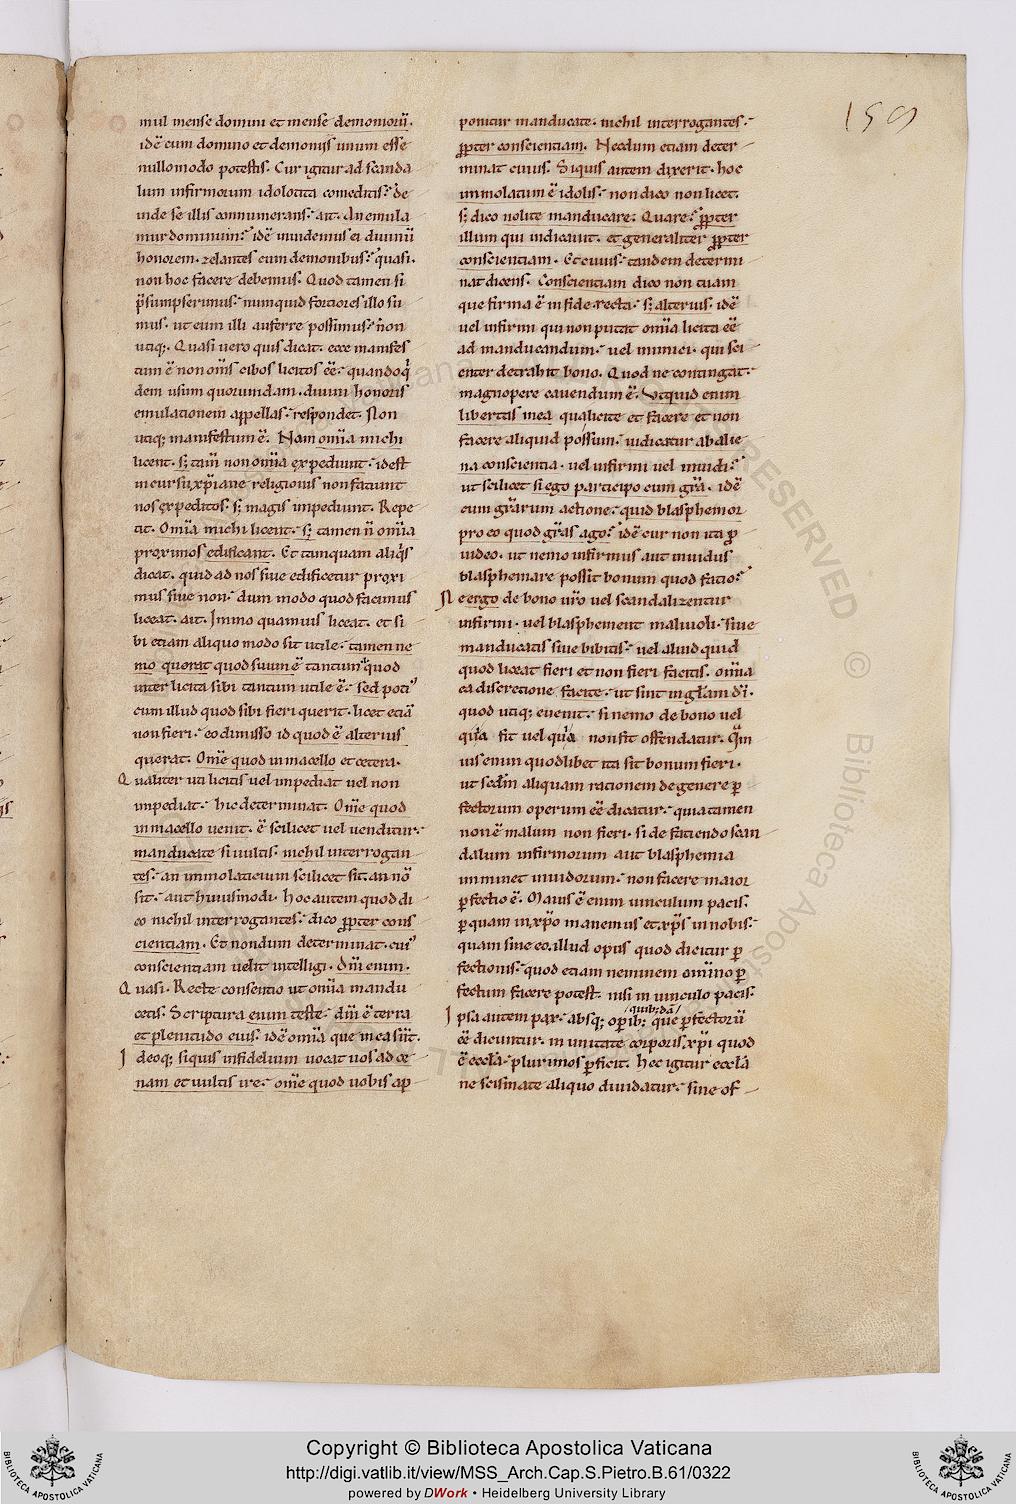 159
mul mense domini et mense demonioꝝ.
idē cum domino et demoniis unum esse
nullo modo potestis. Cur igitur ad scanda
lum infirmorum idolotita comeditis. de
inde se illis connumerans. ait. An emula
mur dominum. idē inuidemus ei diuinū
honorem. zelantes cum demonibus. quasi.
non hoc facere debemus. Quod tamen si
p̄sumpserimus. nunquid fortiores illo su
mus. ut eum illi auferre possimus. n̄ on
utiq;. Quasi uero quis dicat. ecce manifes
tum ē non om̄s cibos licitos eē. quandoq͛
dem usum quorundam. diuini honoris
emulationem appellas. respondet. Non
utiq; manifestum ē. Nam om̄ia michi
licent. s; tam̄ non om̄ia expediunt. id est
in cursu xp̄iane religionis non faciunt
nos expeditos. s; magis impediunt. Repe
tit. Om̄ia michi licent. s; tamen n̄ om̄ia
proximos edificant. Et tanquam aliq͛s
dicat. quid ad nos siue edificetur proxi
mus siue non. dum modo quod facimus
liceat. ait. Immo quamuis liceat. et si
bi etiam aliquo modo sit utile. tamen ne
mo querat quod suum ē tantum quod
inter licita sibi tantum utile ē. sed poti᾽
cum illud quod sibi fieri querit. licet etiā
non fieri. eo dimisso id quod ē alterius
querat. Om̄e quod in macello et cetera.
Qualiter uti licitis uel impediat uel non
impediat. hic determinat. Om̄e quod
in macello uenit. ē scilicet uel uenditur.
manducate si uultis. nichil interrogan
tes. an immolaticium scilicet sit. an nō
sit. aut huiusmodi. hoc autem quod di
co nichil interrogantes. dico ꝓpter cons
cientiam. Et nondum determinat. cui᾽
conscientiam uelit intelligi. dn̄i enim.
Quasi. Recte consentio ut om̄ia mandu
cetis. Scriptura enim teste. dn̄i ē terra
et plenitudo eius. idē om̄ia que in ea sūt.
Ideoq; siquis infidelium uocat uos ad ce
nam et uultis ire. om̄e quod uobis ap
ponitur manducate. nichil interrogantes.
ꝓpter conscientiam. Necdum etiam deter
minat cuius. Siquis autem dixerit. hoc
immolatum ē idolis. non dico non licet.
s; dico nolite manducare. Quare. ꝓpter
illum qui indicauit. et generaliter ꝓpter
conscientiam. Et cuius. tandem determi
nat dicens. Conscientiam dico non tuam
que firma ē in fide recta. s; alterius. idē
uel infirmi qui non putat om̄ia licita eē
ad manducandum. uel inimici. qui sci
enter detrahit bono. Quod ne contingat.
magnopere cauendum ē. Utquid enim
libertas mea qua licite et facere et non
facere aliquid possum. iudicatur ab alie
na conscientia. uel infirmi uel inuidi.
ut scilicet si ego participo cum gr̄a. idē
cum gr̄arum actione. quid blasphemor
pro eo quod gr̄as ago. idē cur non ita ꝓ
uideo. ut nemo infirmus aut inuidus
blasphemare possit bonum quod facio.
Ne ergo de bono uiro uel scandalizentur
infirmi. uel blasphement maliuoli. siue
manducatis siue bibitis. uel aliud quid
quod liceat fieri et non fieri facitis. om̄ia
ea discretione facite. ut sint in gl̄am dī.
quod utiq; euenit. si nemo de bono uel
quia fit uel quia non fit offendatur. Qm̄
uis enim quodlibet ita sit bonum fieri.
ut scd̄m aliquam rationem de genere ꝑ
fectorum operum eē dicatur. quia tamen
non ē malum non fieri. si de faciendo scan
dalum infirmorum aut blasphemia
imminet inuidorum. non facere maior
ꝑfectio ē. Maius ē enim uinculum pacis.
ꝑ quam in xp̄o manemus et xp̄s in nobis.
quam sine eo. illud opus quod dicitur ꝑ
fectionis. quod etiam neminem om̄ino ꝑ
fectum facere potest. nisi in uinculo pacis.
quib;dā
Ipsa autem pax. absq; oꝑib; que ꝑfectorū
eē dicuntur. in unitate corporis xp̄i quod
ē eccl̄a. plurimos ꝑficit. hec igitur eccl̄a
ne scismate aliquo diuidatur. sine of
RESERVED © Biblioteca Apostolica Vaticana
Copyright © Biblioteca Apostolica Vaticana
http://digi.vatlib.it/view/MSS_Arch.Cap.S.Pietro.B.61/0322
powered by DWork • Heidelberg University Library
BIBLIOTECA APOSTOLICA VATICANA
BIBLIOTECA APOSTOLICA VATICANA